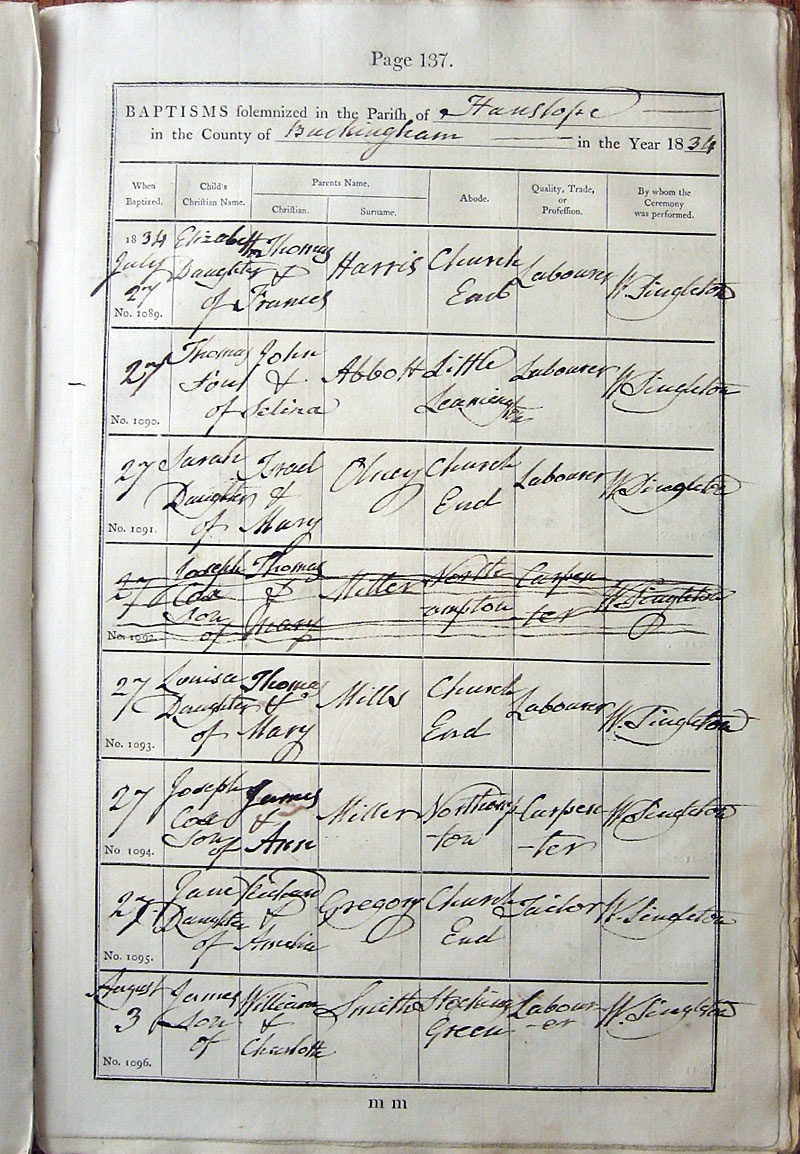 Page 137.
BAPTISMS solemnized in the Parish of Hanslope
in the County of Buckingham in the Year 1834
When Baptized.
Child's Christian Name.
Parents Name.
Christian.
Surname.
Abode.
Quality, Trade, or Profession.
By whom the Ceremony was performed.
1834 Elizabeth Thomas
July Daughter & Harris Church Labourer W. Singleton
27 of Frances End
No. 1089.
Thomas John
27 Son & Abbott Little Labourer W. Singleton
of Selina
No. 1090.
27 Sarah Israel Olney Church Labourer W. Singleton
Daughter & End
of Mary
No. 1091.
27 Joseph Thomas
Cox & Miller North Carpen W. Singleton
Son ampton ter
of Mary
No. 1092.
27 Louisa Thomas Mills Church Labourer W. Singleton
Daughter & End
of Mary
No. 1093.
27 Joseph James Miller Northamp Carpen W. Singleton
Cox & -ton -ter
Son of Ann
No 1094.
27 Jane Richard Gregory Church Tailor W. Singleton
Daughter & End
of Amelia
No. 1095.
August James William Smith Stocking Labour W. Singleton
3 Son & Green -er
of Charlotte
No. 1096.
m m